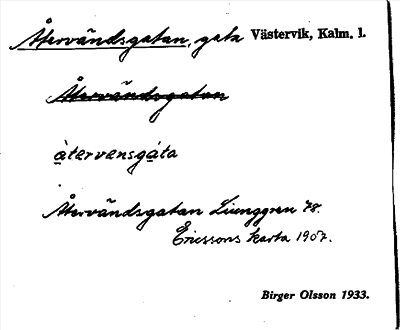 Återvändsgatan, gata Västervik, Kalm. l.
Återvändsgatan
àtervensgàta
Återvändsgatan Ljunggren 78.
Ericssons karta 1907.
Birger Olsson 1933.